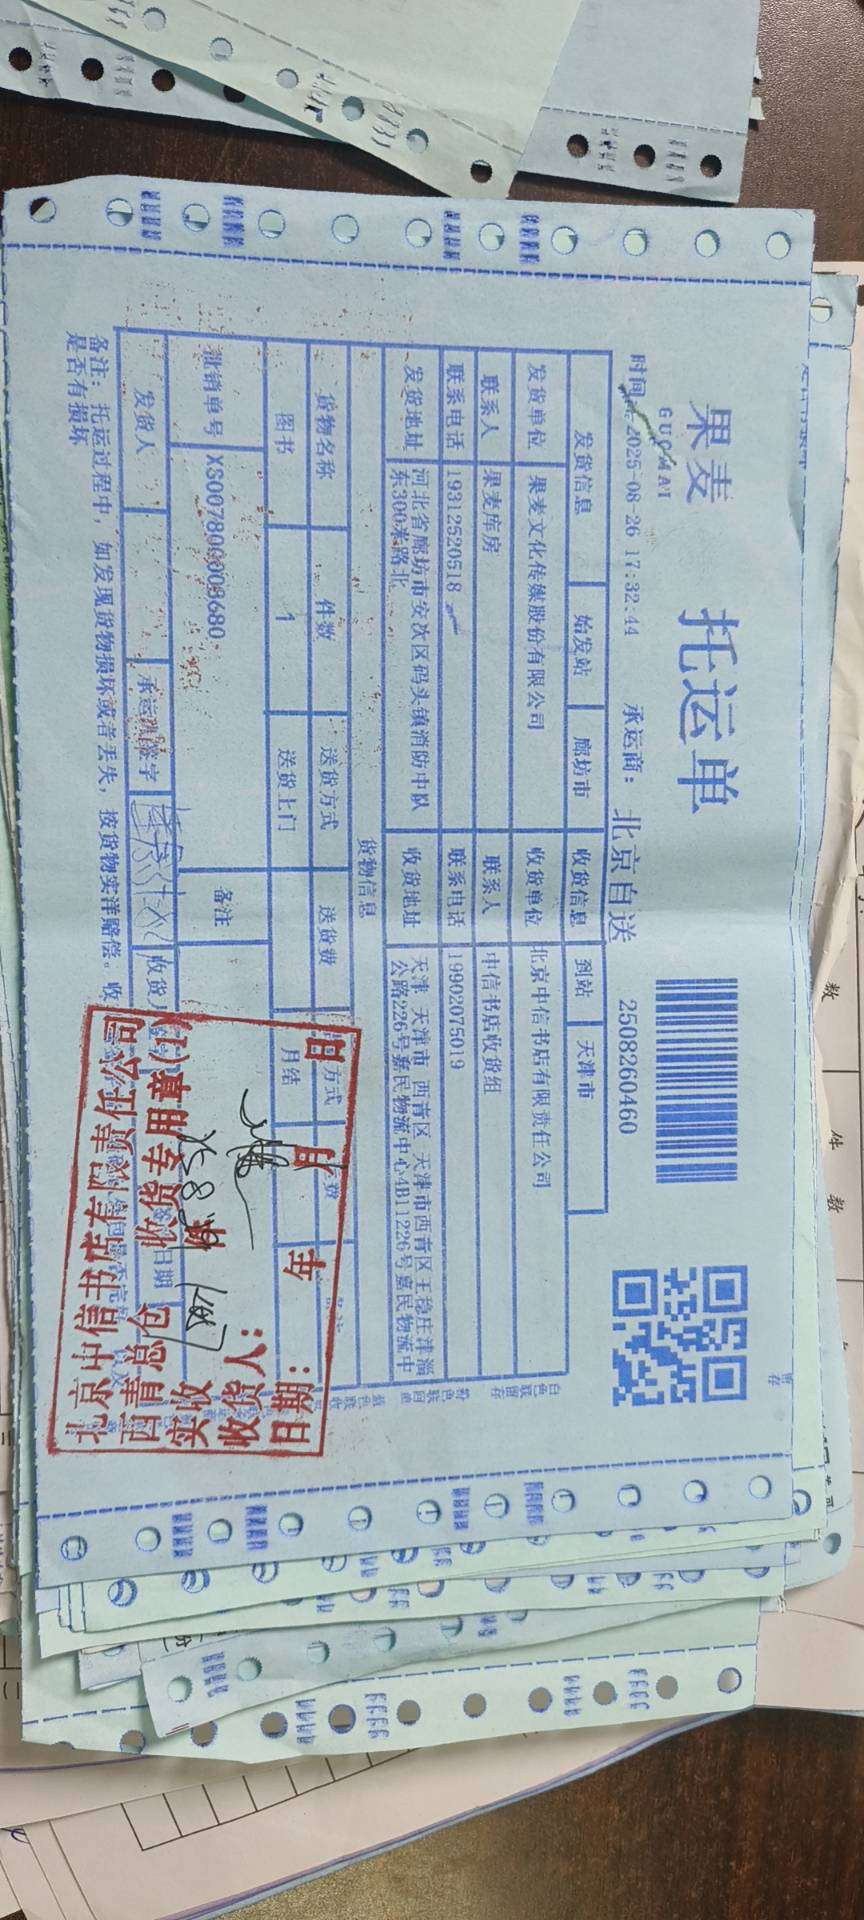 果麦
GUOMAI
托运单
时间: 2025-08-26 17:32:44 承运商: 北京自送 2508260460
发货信息 始发站 廊坊市 收货信息 到站 天津市
发货单位 果麦文化传媒股份有限公司 收货单位 北京中信书店有限责任公司
联系人 果麦库房 联系人 中信书店收货组
联系电话 19312520518 联系电话 19902075019
发货地址 河北省廊坊市安次区码头镇消防中队东300米路北 收货地址 天津 天津市 西青区 天津市西青区王稳庄津淄公路226号嘉民物流中心4B11226号嘉民物流中
货物信息
货物名称 件数 送货方式 送货费 方式
图书 1 送货上门 月结
批销单号 XS007800008680 备注
发货人 承运商签字 收货 日期
备注: 托运过程中, 如发现货物损坏或者丢失, 按货物实洋赔偿。收
是否有损坏
北京中信书店有限责任公司
西青总仓 收货专用章(1)
实收 件
收货人:
日期: 年 月 日